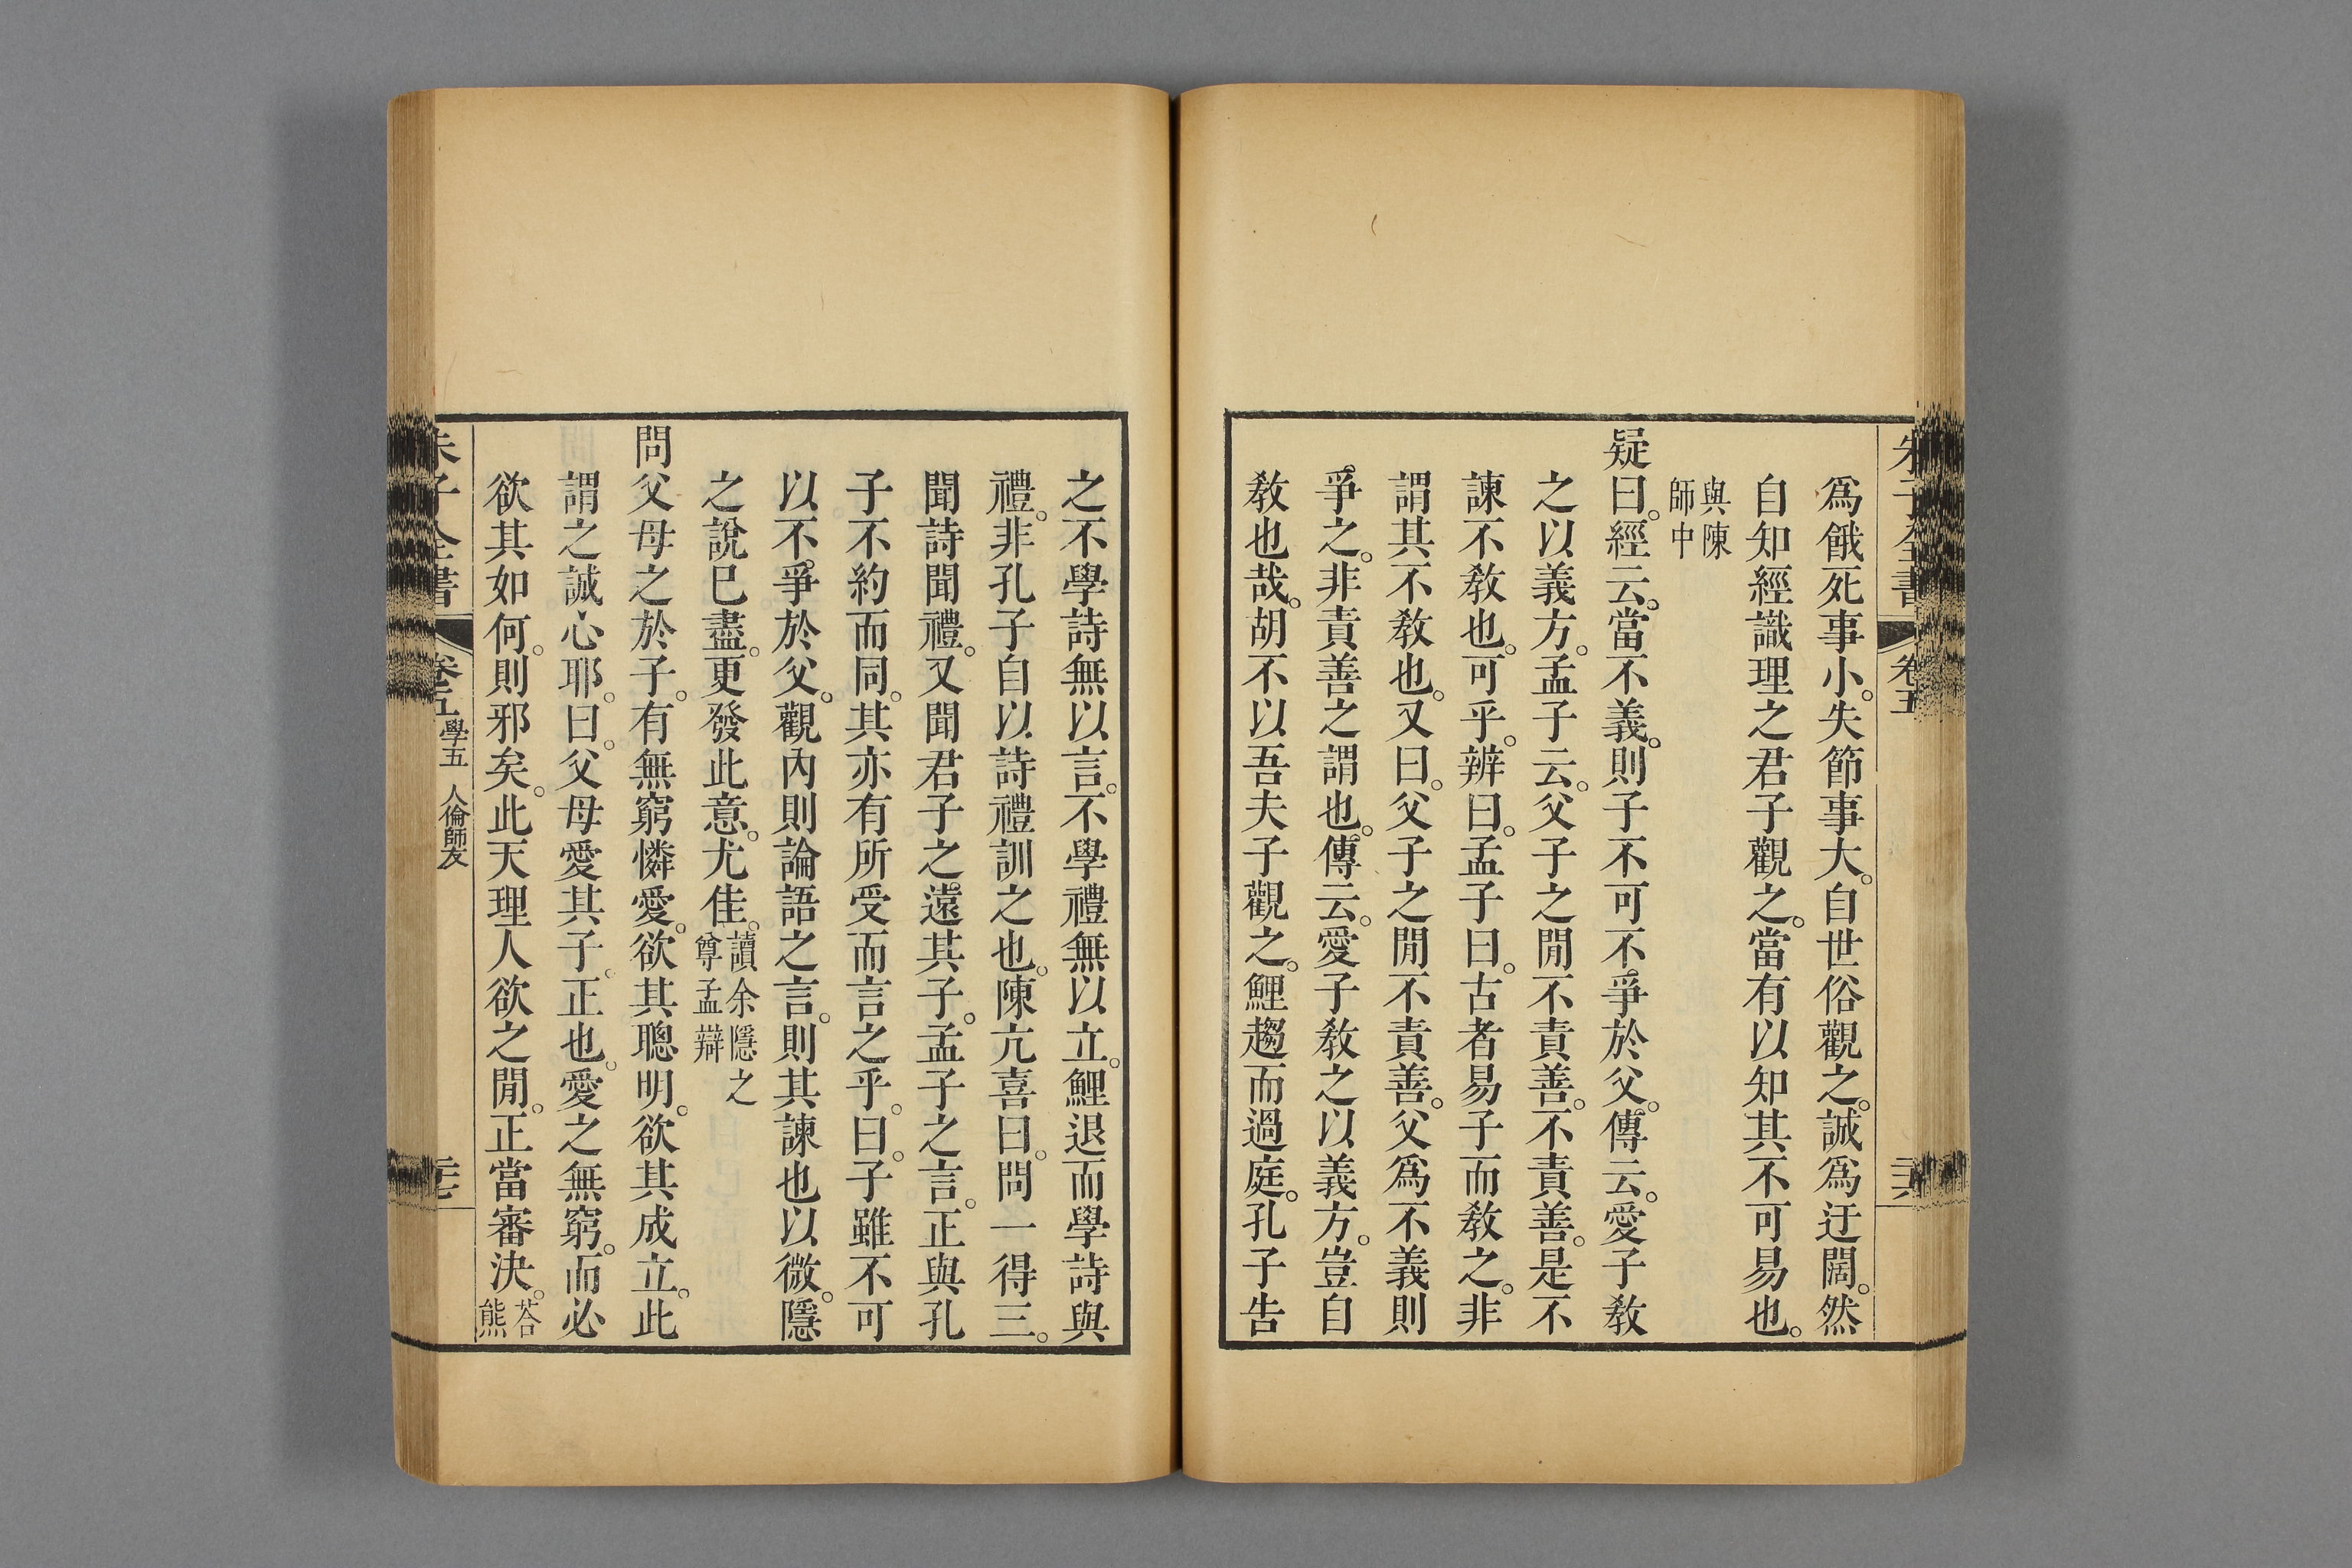 朱子全書 卷五
爲餓死事小。失節事大。自世俗觀之。誠爲迂闊。然
自知經識理之君子觀之。當有以知其不可易也。
與陳
師中
疑曰。經云。當不義。則子不可不爭於父。傳云。愛子敎
之以義方。孟子云。父子之閒不責善。不責善。是不
諫不敎也。可乎。辨曰。孟子曰。古者易子而敎之。非
謂其不敎也。又曰。父子之閒不責善。父爲不義則
爭之。非責善之謂也。傳云。愛子敎之以義方。豈自
敎也哉。胡不以吾夫子觀之。鯉趨而過庭。孔子告
之不學詩無以言。不學禮無以立。鯉退而學詩與
禮。非孔子自以詩禮訓之也。陳亢喜曰。問一得三。
聞詩聞禮。又聞君子之遠其子。孟子之言。正與孔
子不約而同。其亦有所受而言之乎。曰。子雖不可
以不爭於父。觀內則論語之言。則其諫也以微。隱
之說已盡。更發此意。尤佳。
讀余隱之
尊孟辯
問父母之於子。有無窮憐愛。欲其聰明。欲其成立。此
謂之誠心耶。曰。父母愛其子。正也。愛之無窮。而必
欲其如何。則邪矣。此天理人欲之閒。正當審決。
荅
熊
朱子全書 卷五 學五 人倫師友